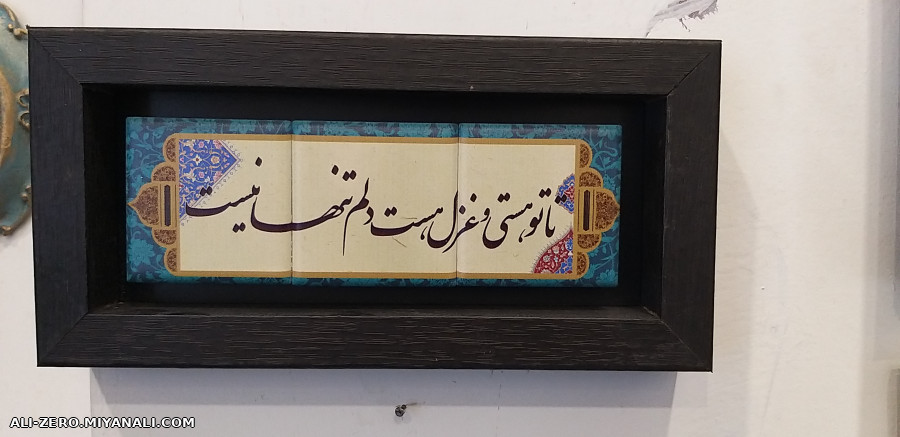 تا تو هستی و غزل هست دلم تنها نیست
ALI-ZERO.MIYANALI.COM